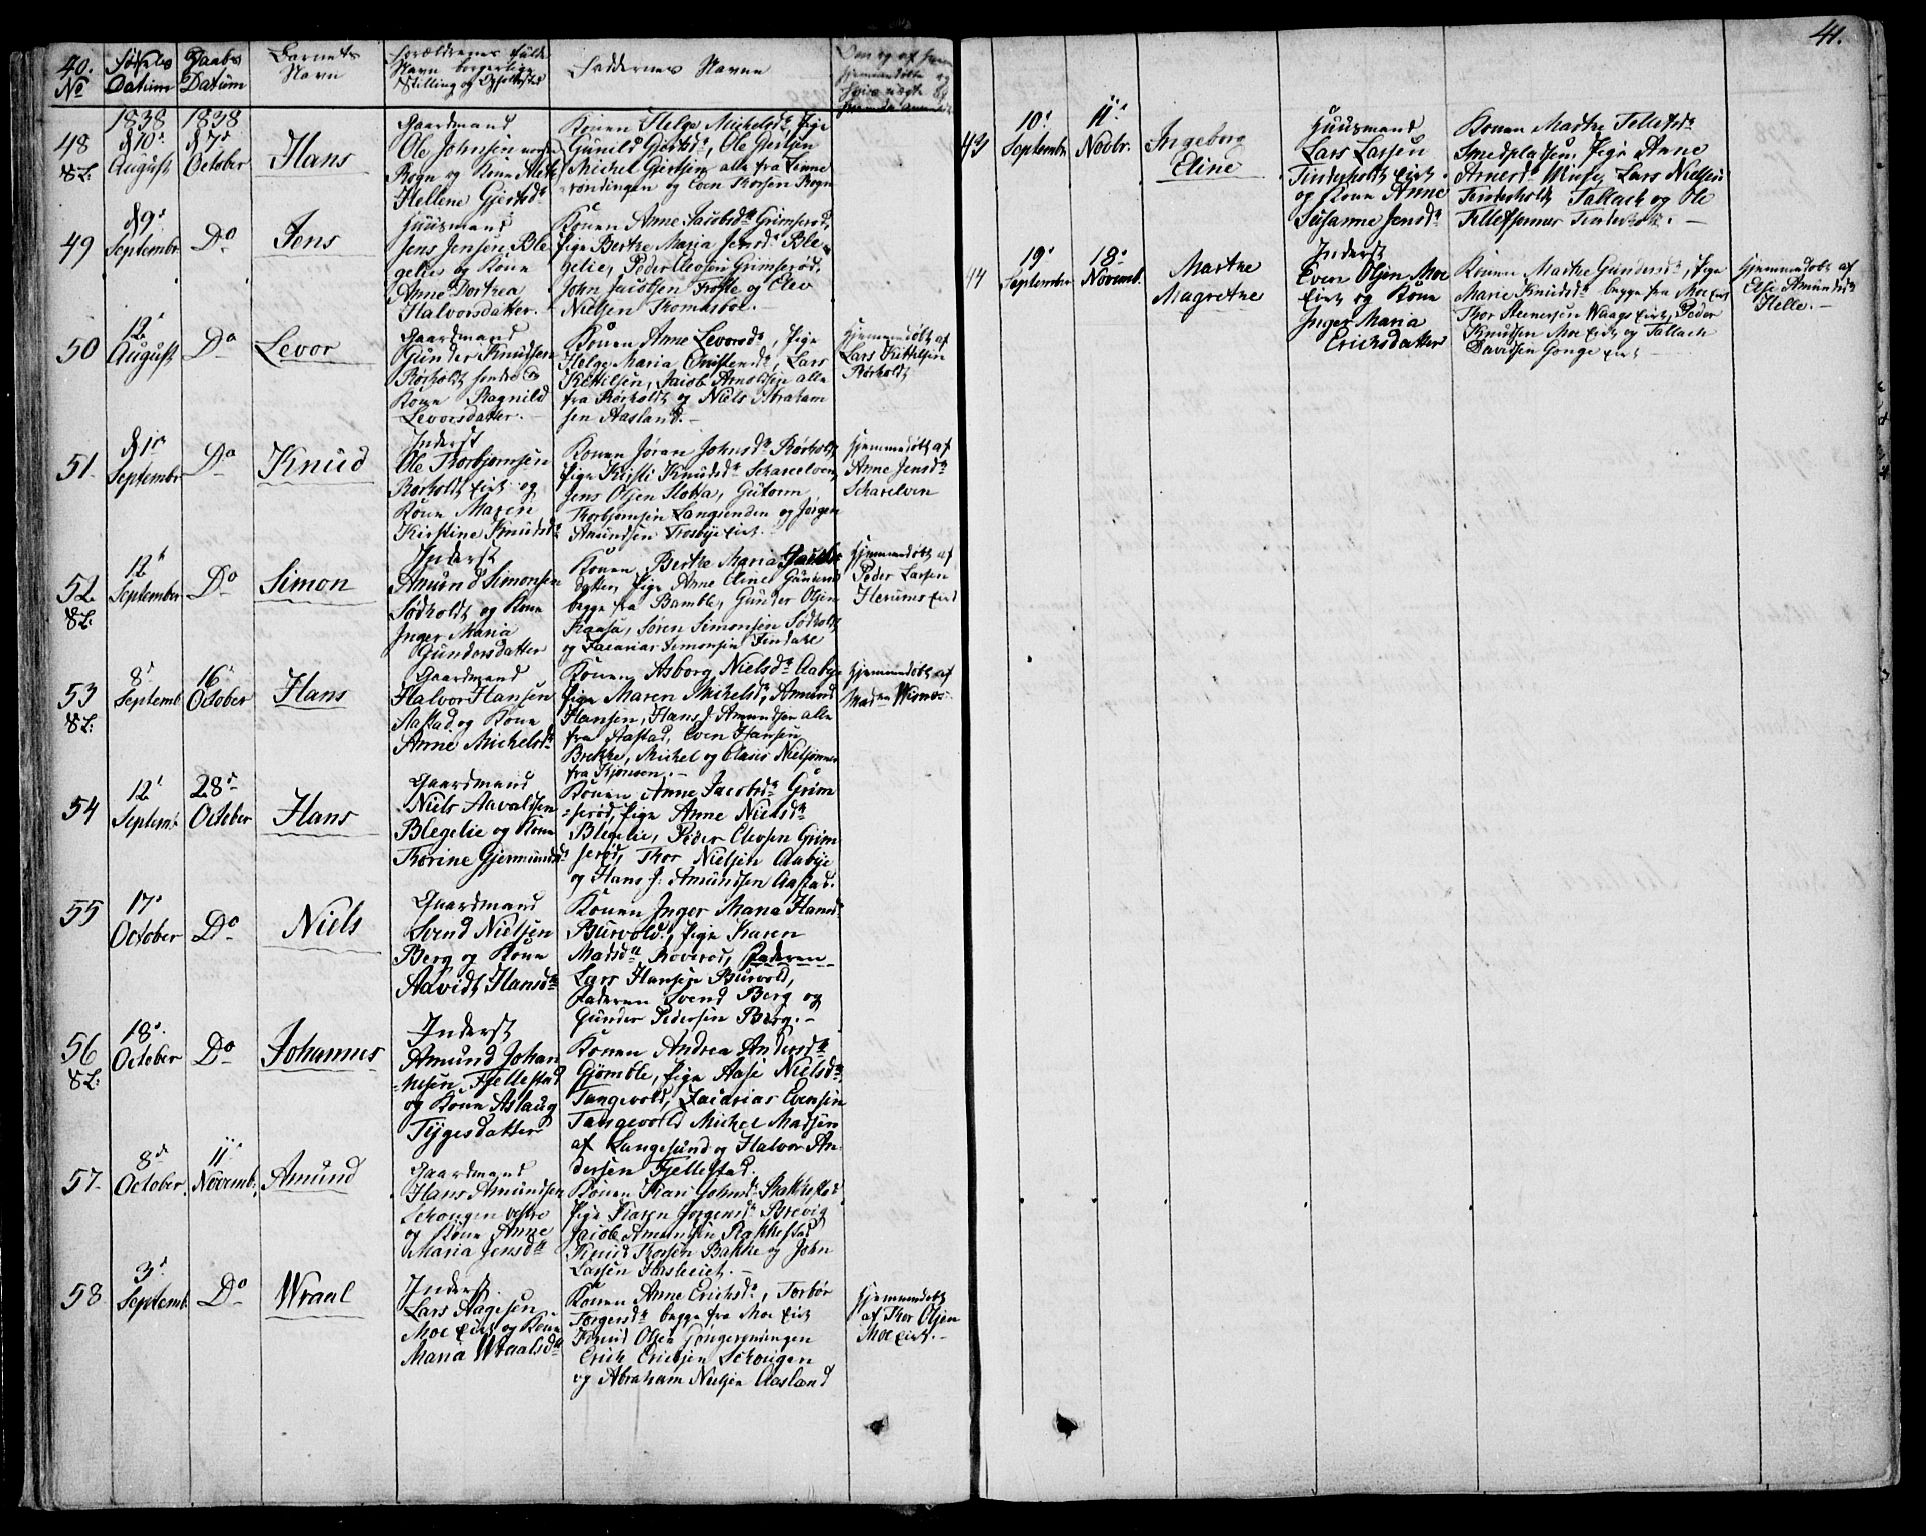 40.
No
Fødsels Datum
Daabs Datum
Barnets Navn
Forældrenes fulde Navn borgerlige Stilling og Opholdsted
Faddernes Navne
48
8L:
1838
d 10de August
1838
d 7de October
Hans
Gaardmand
Ole Johnsen
Rogn og Kone
Hellene Gjertsdr
Konen Helge Michelsdr, Pige
Gunild Gjertsdr, Ole Gjertsen
Michel Gjertsen, alle fra Linne
røndingen og Even Thorsen Rogn
49
d 9de Septembr
Do
Jens
Huusmand
Jens Jensen Ble
gelie og Kone
Anne Dorthea
Halvorsdatter.
Konen Anne Jacobsdr Grimserød,
Pige Berthe Maria Jensdr Ble
gelie, Peder Elevsen Grimserød,
John Jacobsen Froste og Elev
Nielsen Tromasbol.
50
12te August
Do
Levor
Gaardmand
Gunder Knudsen
Rørholdt søndre og
Kone Ragnild
Levorsdatter.
Konen Anne Levorsdr, Pige
Helge Maria Christensdr, Lars
Kittilsen, Jacob Arnoldsen alle
fra Rørholdt og Niels Abraham
sen Aasland.
Hjemmedøbt af
Lars Kittilsen
Rørholdt
51.
d 1ste Septembr
Do
Knud
Inderst
Ole Thorbjørnsen
Rørholdt Eiet og
Kone Maren
Kirstine Knudsdr
Konen Jøran Johnsdr Rørholdt
Pige Kirsti Knudsdr Scharelven
Jens Olsen Slotta, Gutorm
Thorbjørnsen Langenden og Jørgen
Amundsen Trosbye Eiet.
Hjemmedøbt af
Anne Jensdr
Scharelven
52.
8L:
12te September
Do
Simon
Inderst
Amund Simonsen
Sødholdt og Kone
Inger Maria
Gundersdatter
Konen Berthe Maria
datter, Pige Anne Eline Gunders
begge fra Bamble, Gunder Olsen
Kaasa, Søren Simonsen Sødholdt
og Zacarias Simonsen Findahl
Hjemmedøbt af
Peder Larsen
Herums Eiet
53
8L:
8de Septemb.
16de October
Hans
Gaardmand
Halvor Hansen
Aastad og Kone
Anne Michelsdr
Konen Asborg Nielsdr Aabye
Pige Maren Michelsdr, Amund
Hansen, Hans J. Amundsen alle
fra Aastad, Even Hansen
Brekke, Michel og Claus Nielsønner
fra Kjønsen.
Hjemmedøbt af
54
12te Septemb.
28de October
Hans
Gaardmand
Niels Aavaldsen
Blegelie og Kone
Thorine Gjermundsdr
Konen Anne Jacobsdr Grim
serød, Pige Anne Nielsdr
Blegelie, Peder Elevsen Grim
serød, Thor Nielsen Aabye
og Hans J: Amundsen Aastad.
55
17de October
Do
Niels
Gaardmand
Svend Nielsen
Berg og Kone
Aavidt Hansdr
Konen Inger Maria Hansdr
Burvold, Pige Karen
Madsdr Roverod, Faderen
Lars Hansen Burvold,
Faderen Svend Berg og
Gunder Pedersen Berg.
56
8L:
18de October
Do
Johannes
Inderst
Amund Johan
nesen Fjellestad
og Kone Aslaug
Tygesdatter
Konen Andrea Andersdr
Gjømble, Pige Aase Nielsdr
Tangevold, Zacarias Evensen
Tangevold Michel Madsen
af Langesund og Halvor An
dersen Fjellestad.
57
8de October
11te Novemb:
Amund
Gaardmand
Hans Amundsen
Schougen vestre
og Kone Anne
Maria Jensdr
Konen Kari Johnsdr Rakkestad
Pige Karen Jørgensdr Brevig
Jacob Amundsen Rakkestad
Knud Thorsen Bakke og John
Larsen Hasleeiet.
58
3de Septemb.
Do
Wraal
Inderst
Lars Aagesen
Moe Eiet og Kone
Maria Wraalsdr
Konen Anne Erichsdr, Torbør
Torgersdr begge fra Moe Eiet
Knud Olsen Gongerønningen
Erich Erichsen Schougen
og Abraham Nielsen Aasland
Hjemmedøbt
af Thor Olsen
Moe Eiet.
41.
43
10de September
11te Novbr.
Ingeborg
Eline
Huusmand
Lars Larsen
Tinderholdt Eiet
og Kone Anne
Susanne Jensdr
Konen Marthe Tellefsdr
Smedpladsen, Pige Anne
Arnesdr Lars Nielsen
Tinderholdt Tallach og Ole
Tellefsønner Tinderholdt.
44
19de September
18de Novemb.
Marthe
Magrethe
Inderst
Even Olsen Moe
Eiet og Kone
Inger Maria
Erichsdatter
Konen Marthe Gundersdr, Pige
Marie Knudsdr begge fra Moe Eiet
Thor Steenersen Waags Eiet, Peder
Knudsen Moe Eiet og Tallach
Davidsen Gonge Eiet
Hjemmedøbt af
Else Amundsdr
Helle.